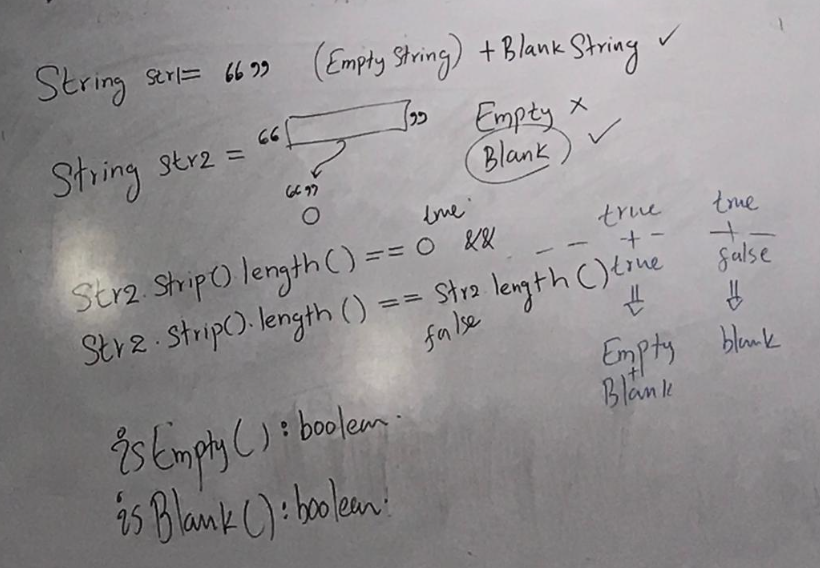 String str1= “ ” (Empty String) + Blank String ✓
String str2 = “ ” Empty ×
Blank ✓
“ ”
0
true
Str2.strip().length() == 0 && _ _
Str2.strip().length() == Str2.length()
false
true true
+ - + -
true false
⇓ ⇓
Empty blank
+
Blank
isEmpty() : boolean.
isBlank() : boolean.